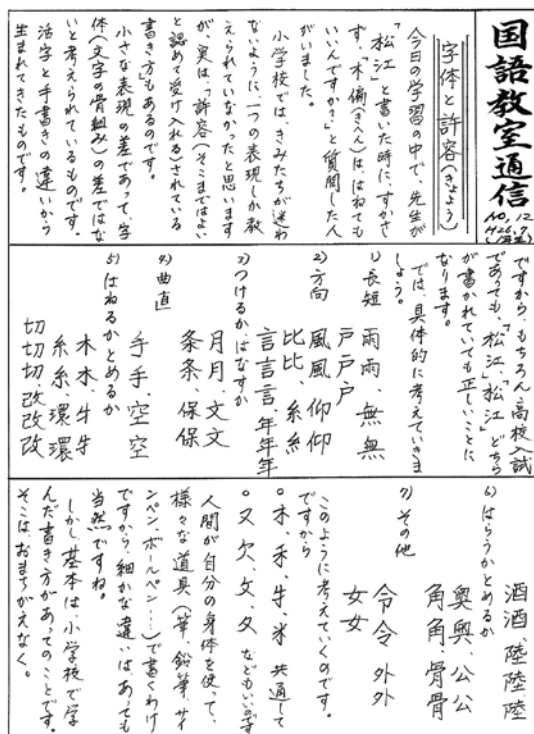 国語教室通信
No.12
H26.7
字体と許容(きょよう)
今日の学習の中で、先生が
「松江」と書いた時に、すかさ
ず、「木偏(きへん)は、はねても
いいんですか?」と質問した人
がいました。
小学校では、きみたちが迷わ
ないように、一つの表現しか教
えられていなかったと思います
が、実は、「許容(そこまではよい
と認めて受け入れる)されている
書き方」もあるのです。
小さな表現の差であって、字
体(文字の骨組み)の差ではな
いと考えられているものです。
活字と手書きの違いから
生まれてきたものです。
ですから、もちろん、高校入試
であっても、「松江」「松江」どちら
が書かれていても正しいことに
なります。
では、具体的に考えていきま
しょう。
1)長短
雨雨、無無
戸戸戸
2)方向
風風仰仰
比比、糸糸
言言言、年年年
3)つけるか、はなすか
月月、文文
条条、保保
4)曲直
手手、空空
5)はねるかとめるか
木木、牛牛
糸糸、環環
切切切、改改改
6)はらうかとめるか
酒酒、陸陸陸
奥奥、公公
角角、骨骨
7)その他
令令 外外
女女
このように考えていくのです。
ですから
○木、禾、牛、米 共通して
○又、欠、文、夕 などもいいのです
人間が自分の身体を使って、
様々な道具(筆、鉛筆、サイ
ンペン、ボールペン…)で書くわけ
ですから、細かな違いは、あっても
当然ですね。
しかし、基本は、小学校で学
んだ書き方があってのことです。
そこは、おまちがえなく。